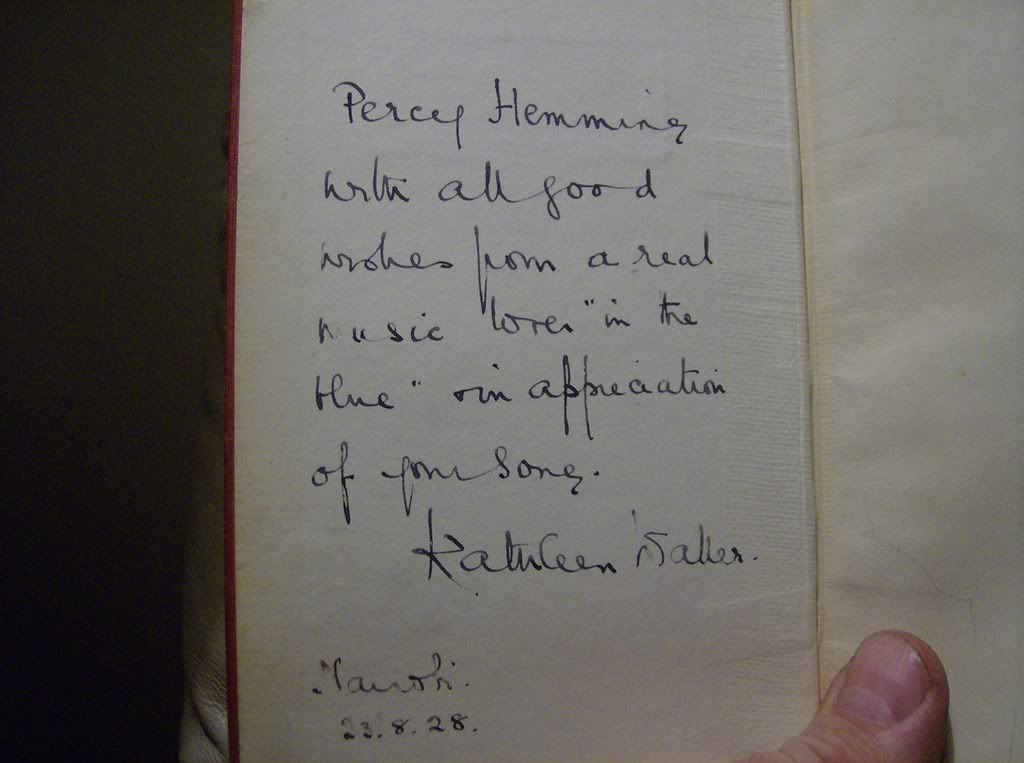 Percy Hemming
with all good
wishes from a real
music lover "in the
blue" & in appreciation
of your song.
Kathleen
Nairobi.
23.8.28.